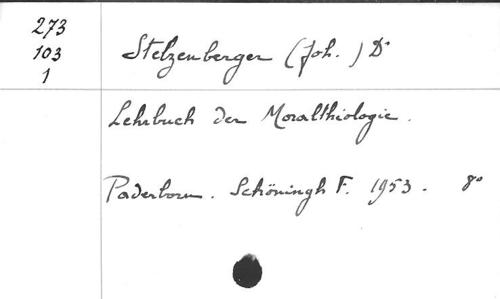 273
103
1
Stelzenberger (Joh.) Dr
Lehrbuch der Moralthiologie.
Paderborn. Schöningh F. 1953. 8°